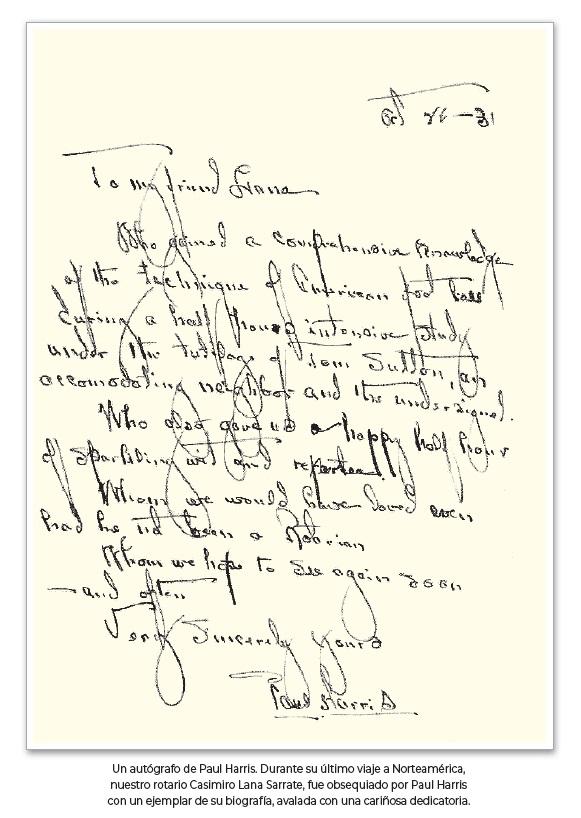 Oct 26 - 31
To my friend Lana
Who gained a comprehensive knowledge
of the technique of American foot ball
during a half hours intensive study
under the tutilage of Tom Sutton, an
accomodating neighbor and the undersigned.
Who also gave us a happy half hour
of sparkling wit and repartee
Whom we would have loved even
had he not been a Rotarian
Whom we hope to see again soon
— and often
Very Sincerely Yours
Paul Harris
Un autógrafo de Paul Harris. Durante su último viaje a Norteamérica,
nuestro rotario Casimiro Lana Sarrate, fue obsequiado por Paul Harris
con un ejemplar de su biografía, avalada con una cariñosa dedicatoria.